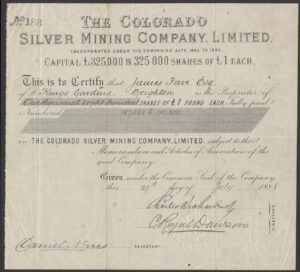 No. 188
THE COLORADO
SILVER MINING COMPANY, LIMITED.
INCORPORATED UNDER THE COMPANIES ACTS, 1862 TO 1886.
CAPITAL £325,000 IN 325,000 SHARES OF £1 EACH.
This is to Certify that James Fair Esq
of Kings Gardens, Brighton is the Proprietor of
One thousand eight hundred SHARES OF £1 POUND EACH, fully paid
Numbered
IN THE COLORADO SILVER MINING COMPANY, LIMITED, subject to the
Memorandum and Articles of Association of the
said Company.
Given under the Common Seal of the Company,
this 27th day of July 1888
DIRECTORS.
Daniel Norris
SECRETARY.